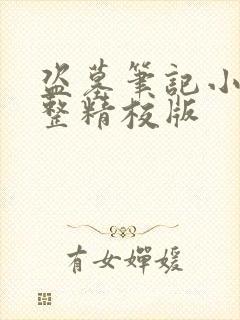 盗墓筆記小
整精校版
有女嬋媛